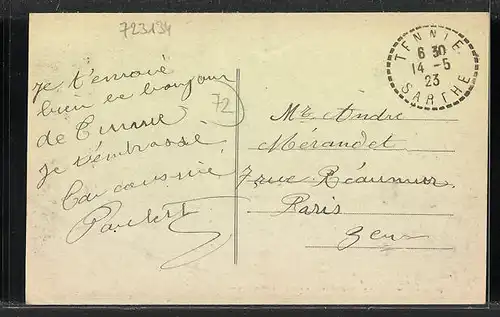 723134
Je t'envoie
bien le bonjour
de Tennie
Je t'embrasse
Ton cousin
72
TENNIE
6 30
14 - 5
23
SARTHE
Mr André
Mérandet
7 rue Réaumur
Paris
3em